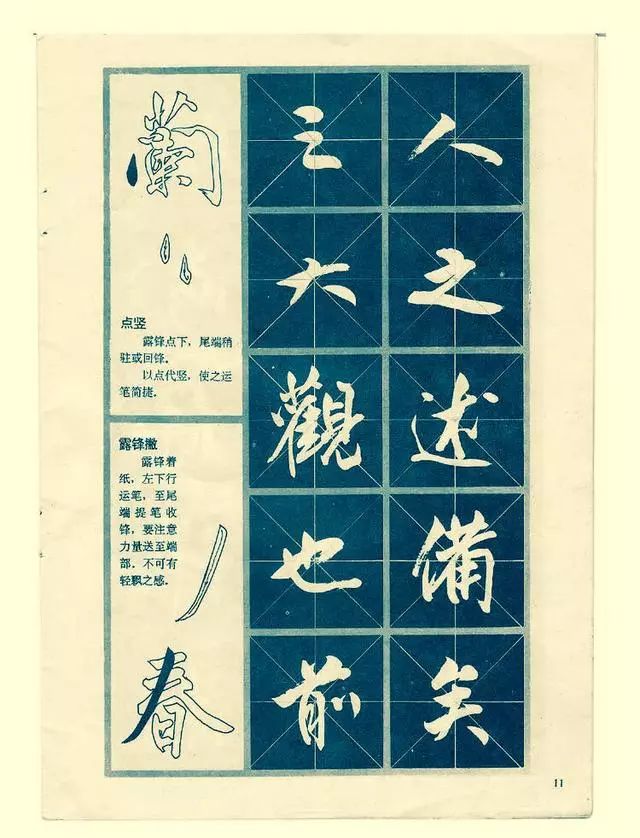 蘭
点竖
露锋点下，尾端稍
驻或回锋。
以点代竖，使之运
笔简捷。
露锋撇
露锋着
纸，左下行
运笔，至尾
端提笔收
锋，要注意
力量送至端
部，不可有
轻飘之感。
春
之大觀也前
人之述備矣
11